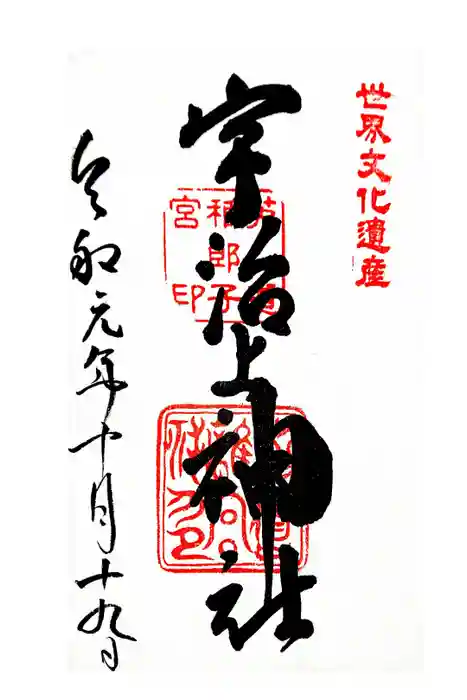 世界文化遺産
宇治上神社
令和元年十月十九日
宮
郎子
印